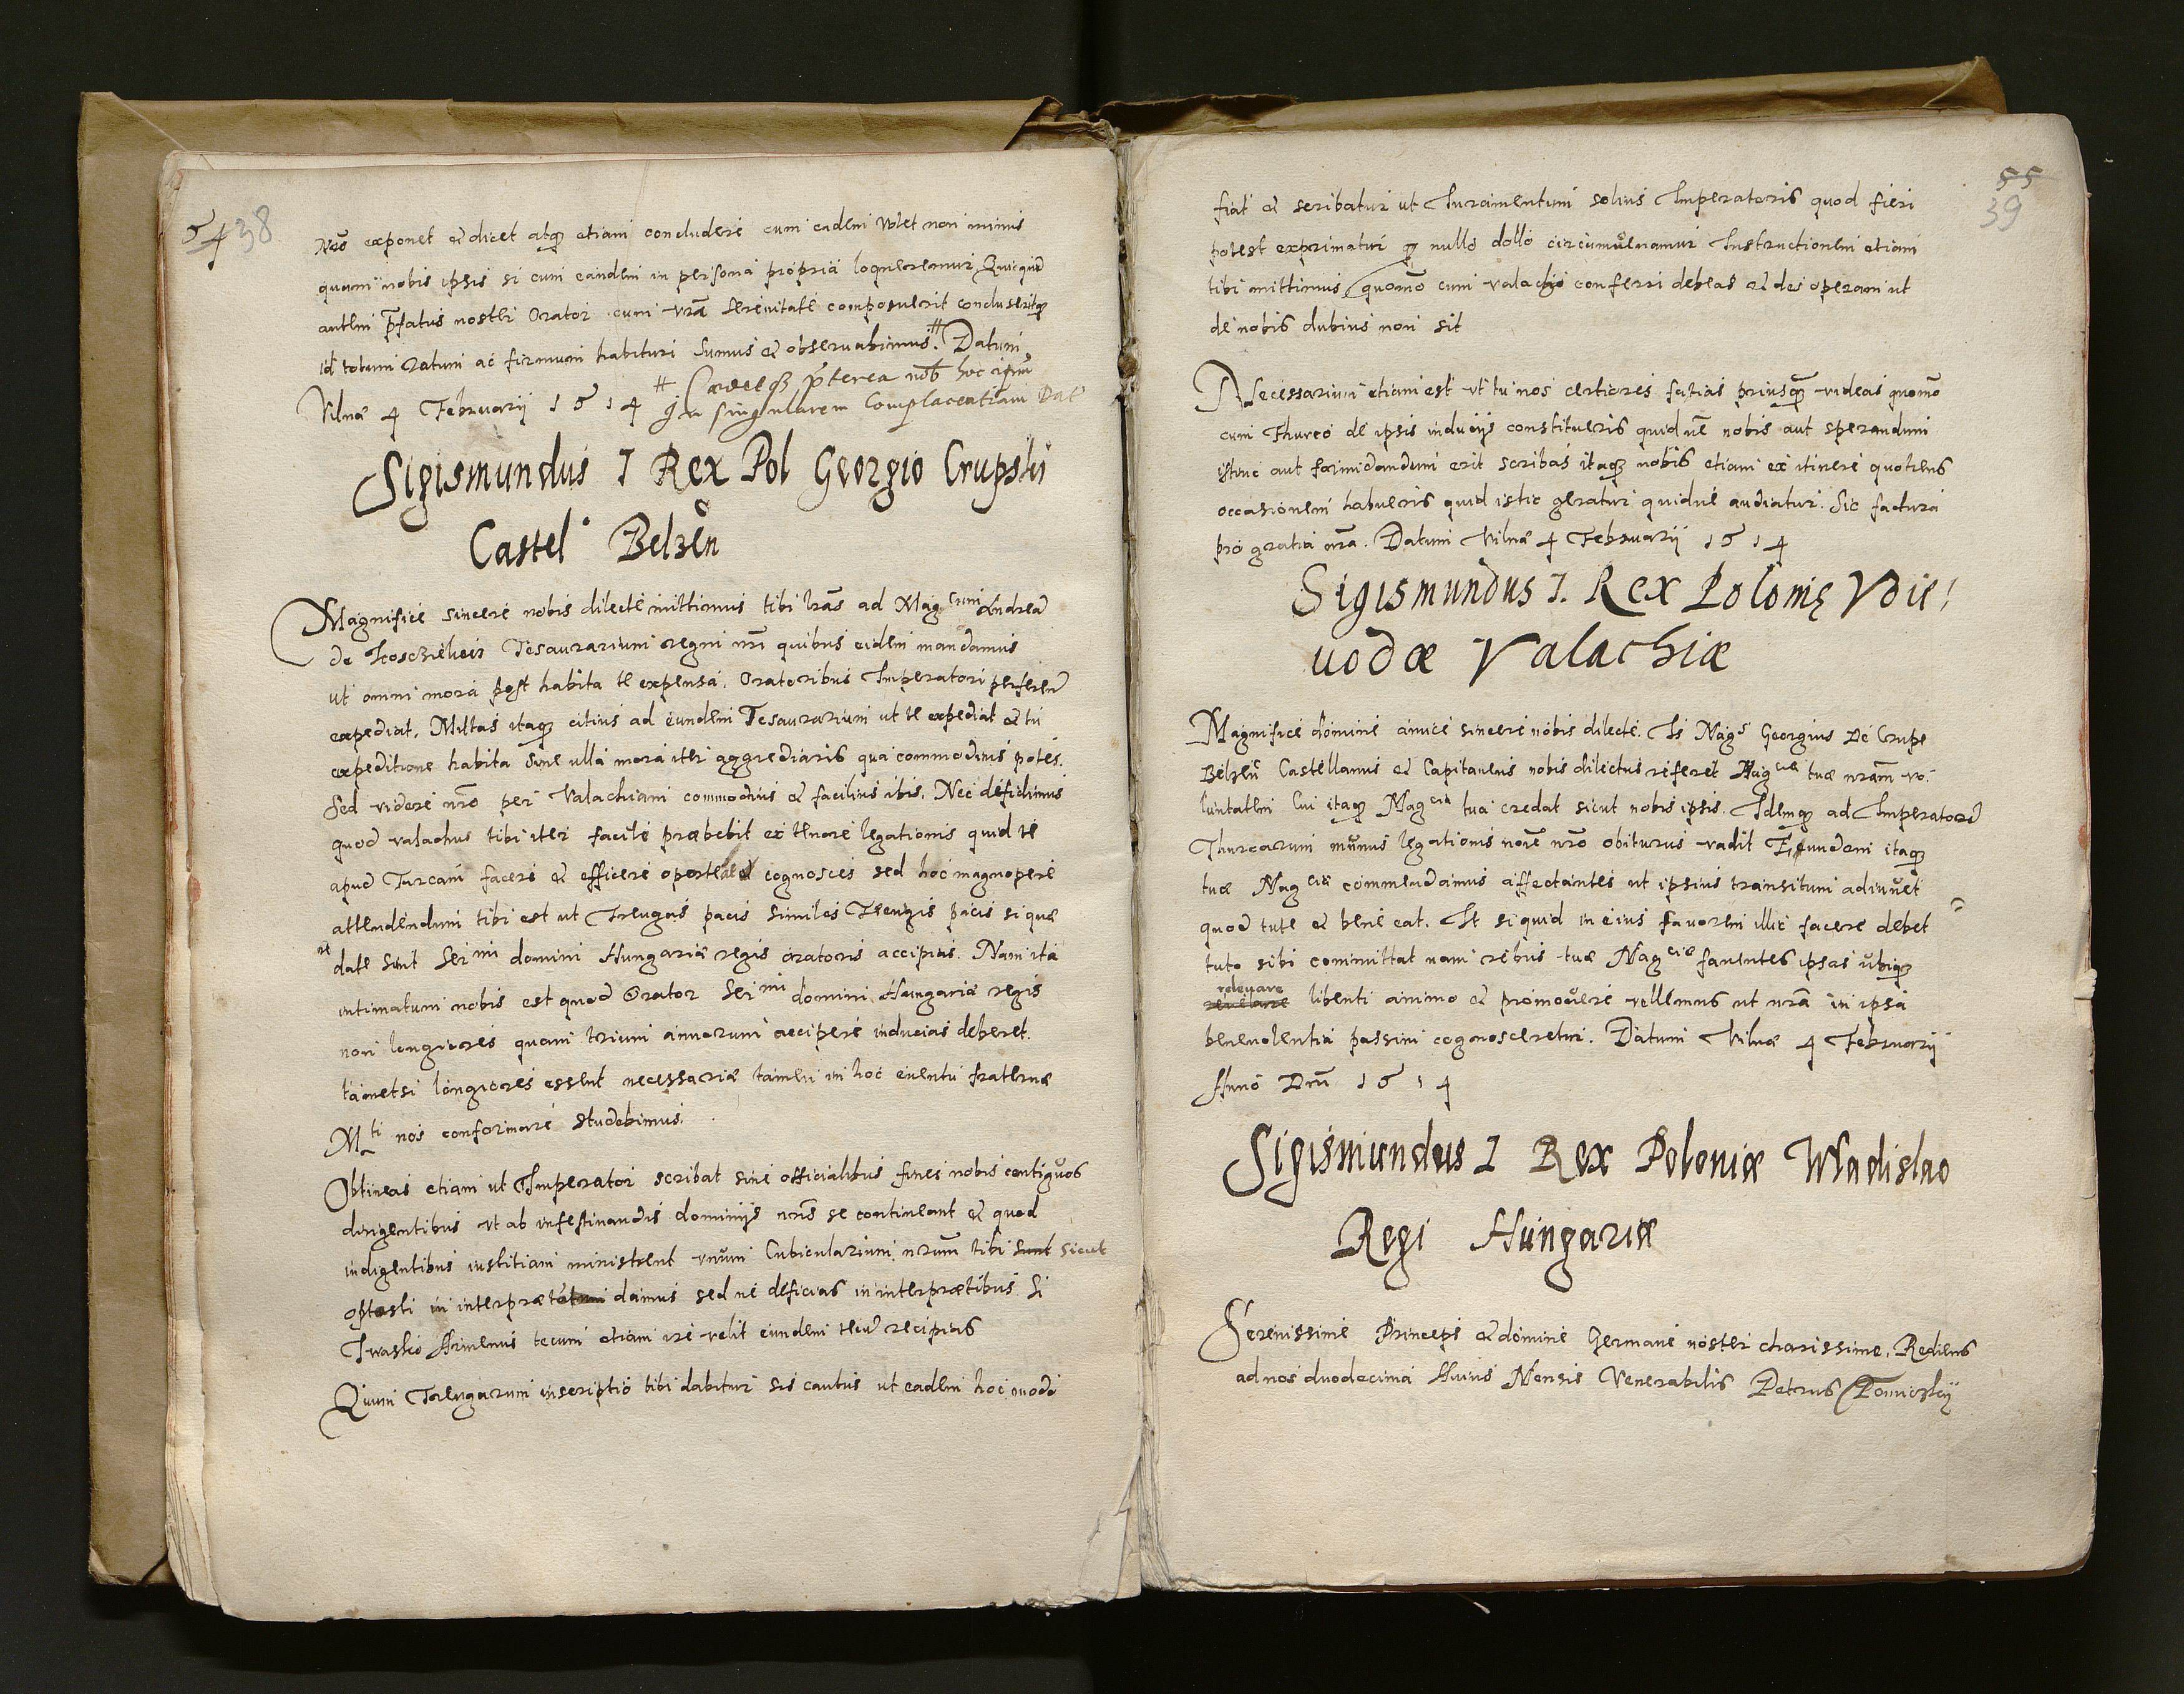 54 38
nr̃o exponet et dicet atq3 etiam concludere cum eadem volet non minus
quam nobis ipsis si cum eandem in persona propria loqueremur Quicquid
autem p̃fatus noster Orator cum vr̃a serenitate composuerit concluseritq3
id totum ratum ac firmum habituri sumus et observabimus. # Datum
Vilnæ 4 Februarij 1514 # p̃terea nob̃ hoc ip̃m
In singularem Complacentiam Dat
Sigismundus I Rex Pol Georgio Crupski
Castel Belzen̄
Magnifice sincere nobis dilecte mittimus tibi lr̃as ad Mag cum Andream
de Tesaurarium regni nr̃i quibus eidem mandamus
ut omni mora post habita te expensa, Oratoribus Imperatori
expediat. Mittas itaq3 citius ad eundem Tesaurarium ut te expediat et tu
expeditione habita sine ulla mora iter aggrediaris qua commodius potes.
Sed videre nr̃o per Valachiam commodius et facilius ibis. Nec difidimus
quod valachus tibi iter facile præbebit ex tenore legationis quid te
apud Turcam facere et efficere oporteat cognosces sed hoc magnopere
attendendum tibi est ut Treugas pacis similes Treugis pacis si quæ
date sint Ser mi domini Hungariæ regis oratoris accipias. Nam ita
intimatum nobis est quod Orator Ser mi domini Hungariæ regis
non longiores quam trium annorum accipere inducias deberet.
tametsi longiores essent necessariæ tamen in hoc eventu fraternæ
M ti nos conformare studebimus.
Obtineas etiam ut Imperator scribat sine officialibus fines nobis contiguos
dirigentibus ut ab infestinandis dominijs nr̃is se contineant et quod
indigentibus iustitiam ministrent unum Cubicularium nr̃um tibi sunt sicut
optasti in damus sed ne deficias in interprætibus Si
Iwasko Armenus tecum etiam ire velit eundem recipias
Quum Treugarum inscriptio tibi dabitur sis cautus ut eadem hoc modo
55
39
fiat et scribatur ut Iuramentum solius Imperatoris quod fieri
potest exprimatur q3 nullo dollo circumveniamur Instructionem etiam
tibi mittimus quom̃o cum valacho conferri debeas et des operam ut
de nobis dubius non sit
Necessarium etiam est ut tu nos certiores facias priusq̃ videas quom̃o
cum Thurco de ipsis inducijs constitueris quid ne nobis aut sperandum
istinc aut formidandum erit scribas itaq3 nobis etiam ex itinere quotiens
occasionem habueris quid istic geratur quidve audiatur. Sic factura
pro gratia nr̃a. Datum Vilnæ 4 Februarij 1514
Sigismundus I. Rex Polonię Voie!
uodæ Valachiæ
Magnifice domine amice sincere nobis dilecte. Is Mag s Georgius De Crupe
Belzen̄ Castellanus et Capitaneus nobis dilectus referet Mag ciæ tuæ nr̃am vo-
luntatem Cui itaq3 Mag cia tua credat sicut nobis ipsis. Idemq3 ad Imperatorem
Thurcarum munus legationis noīe nr̃o obiturus vadit Eundem itaq3
tuæ Mag ciæ commendamus affectantes ut ipsius transitum adiuvet
quod tute et bene eat. Et si quid in eius favorem illic facere debet
tuto sibi committat nam rebus tuæ Mag ciæ faventes ipsas ubiq3
relevare
libenti animo et promovere vellemus ut nr̃a in ipsa
benevolentia passim cognosceretur. Datum Vilnæ 4 Februarij
Anno Dn̄i 1514
Sigismundus I Rex Poloniæ Wladislao
Regi Hungariæ
Serenissime Princeps et domine Germane noster charissime. Rediens
ad nos duodecima Huius Mensis Venerabilis Petrus Tomiczkij